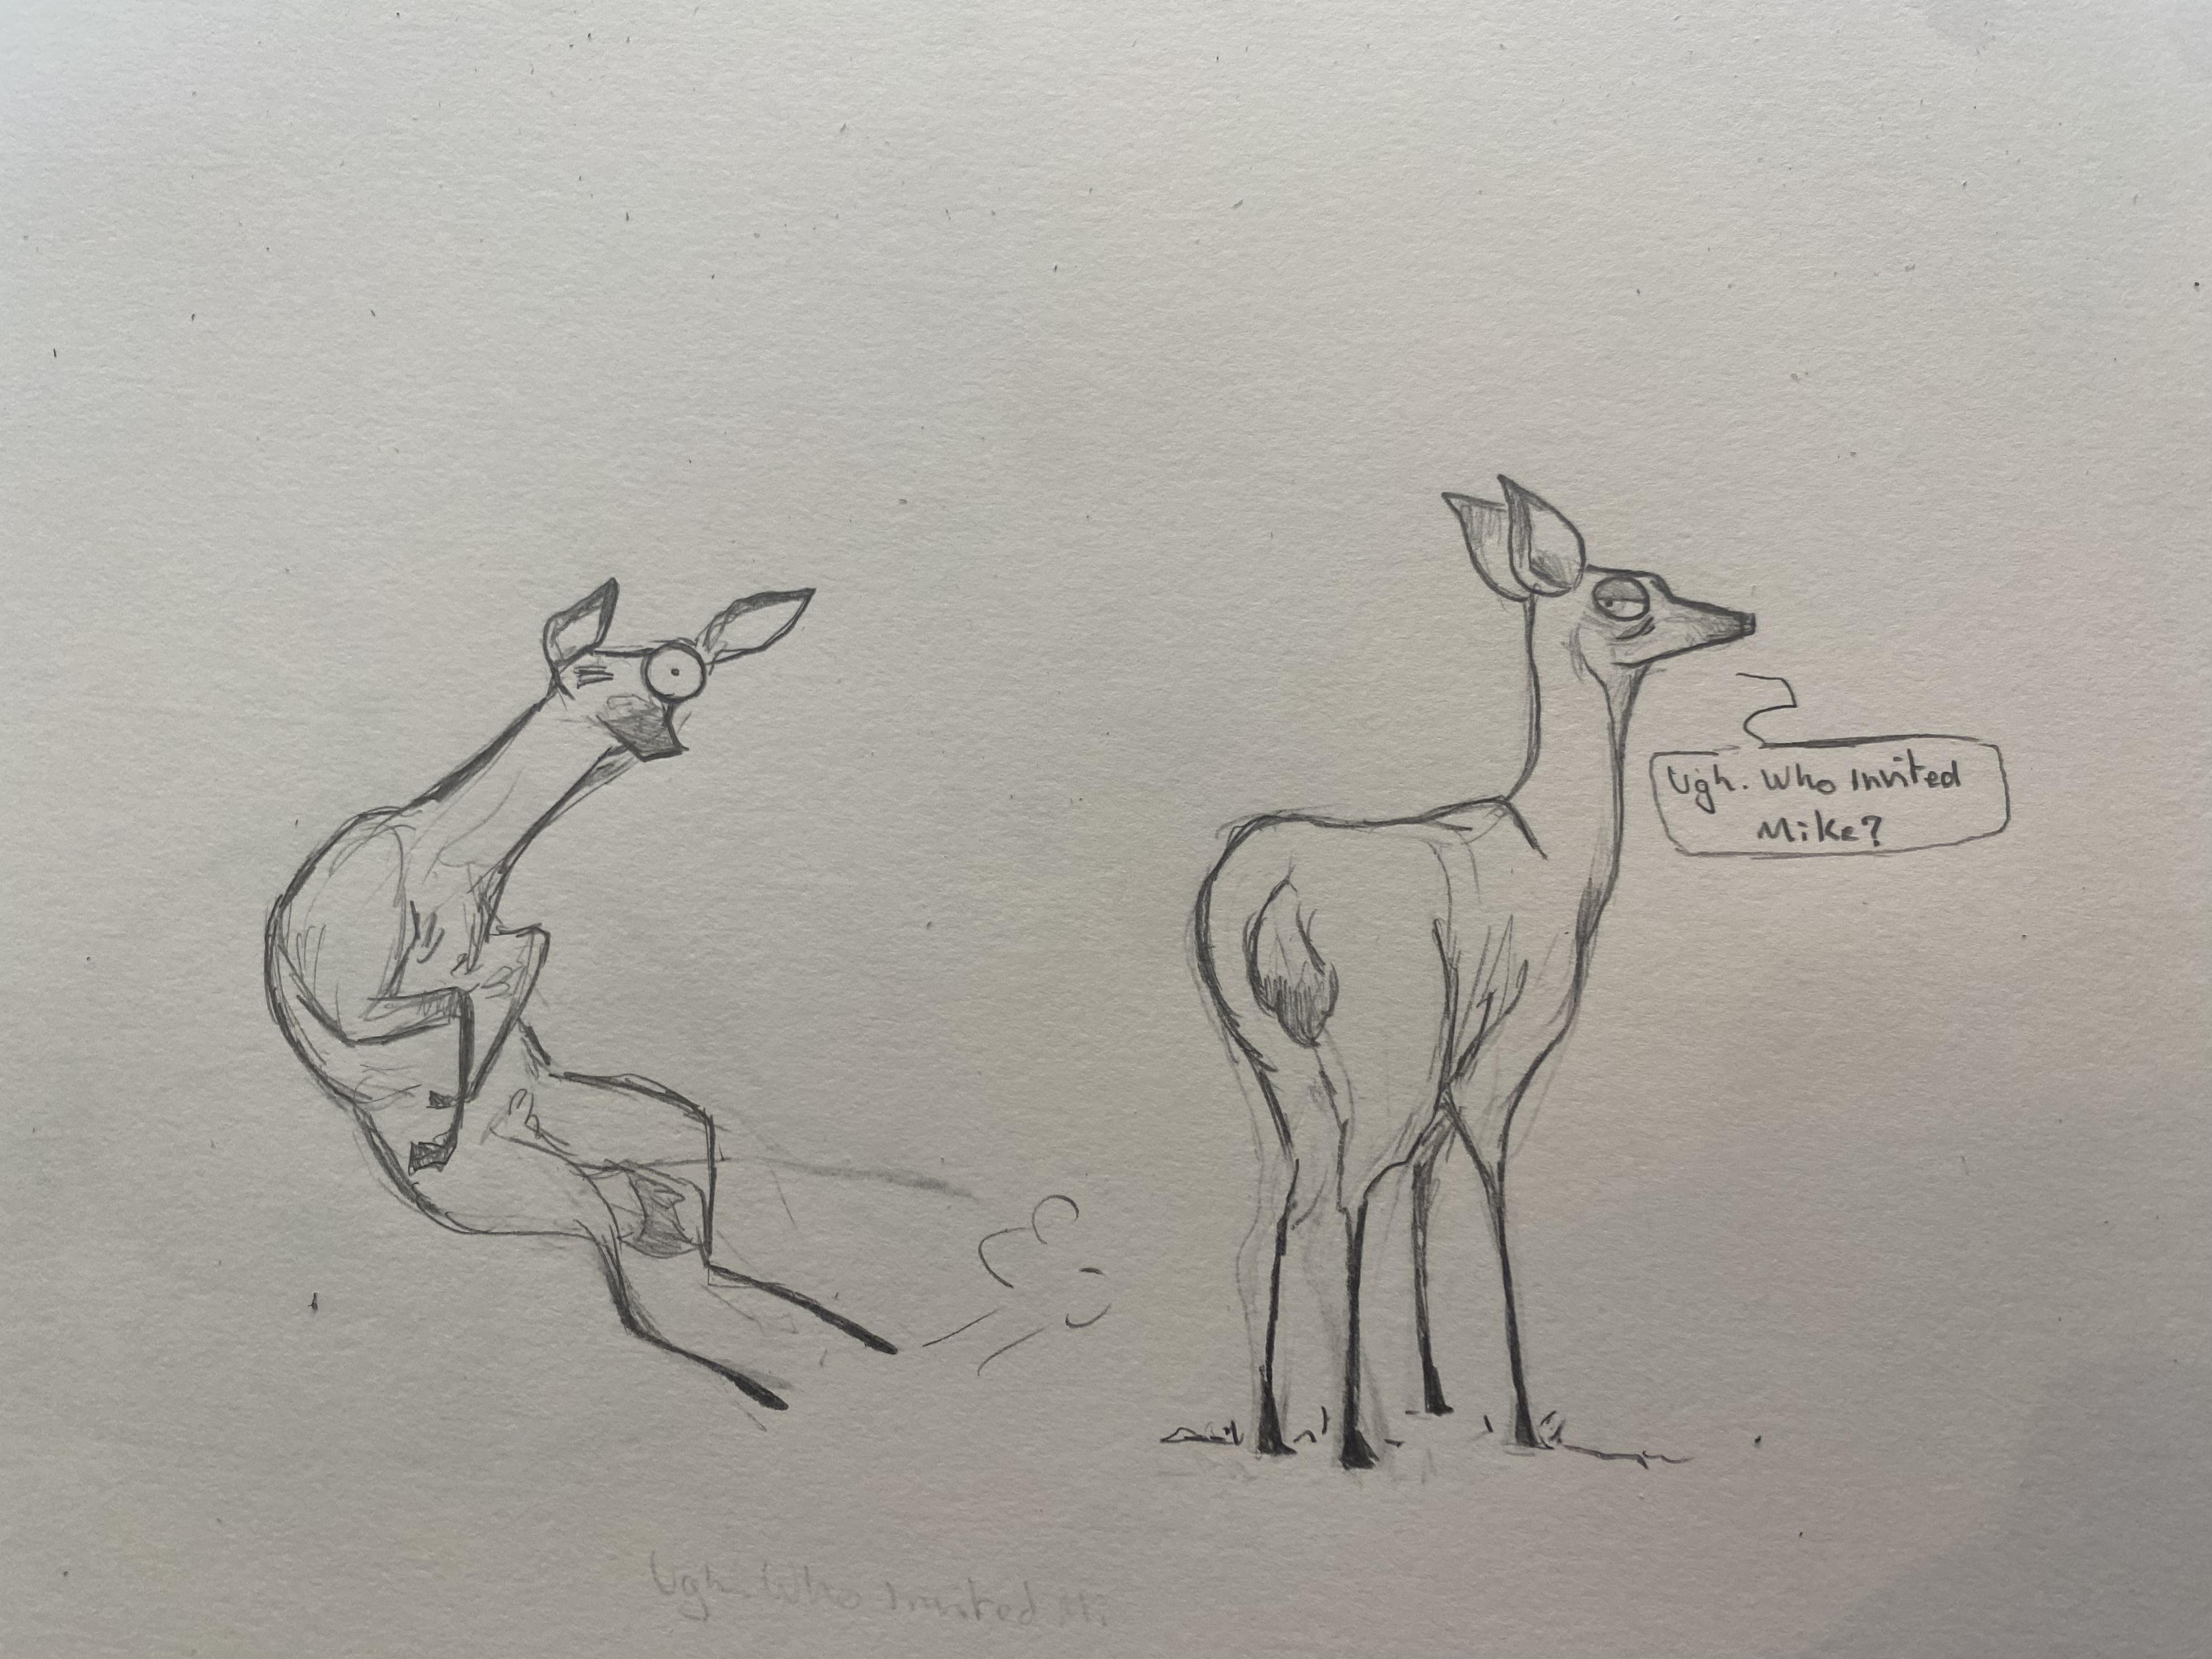 Ugh. Who Invited
Mike?
Ugh. Who Invited Mi